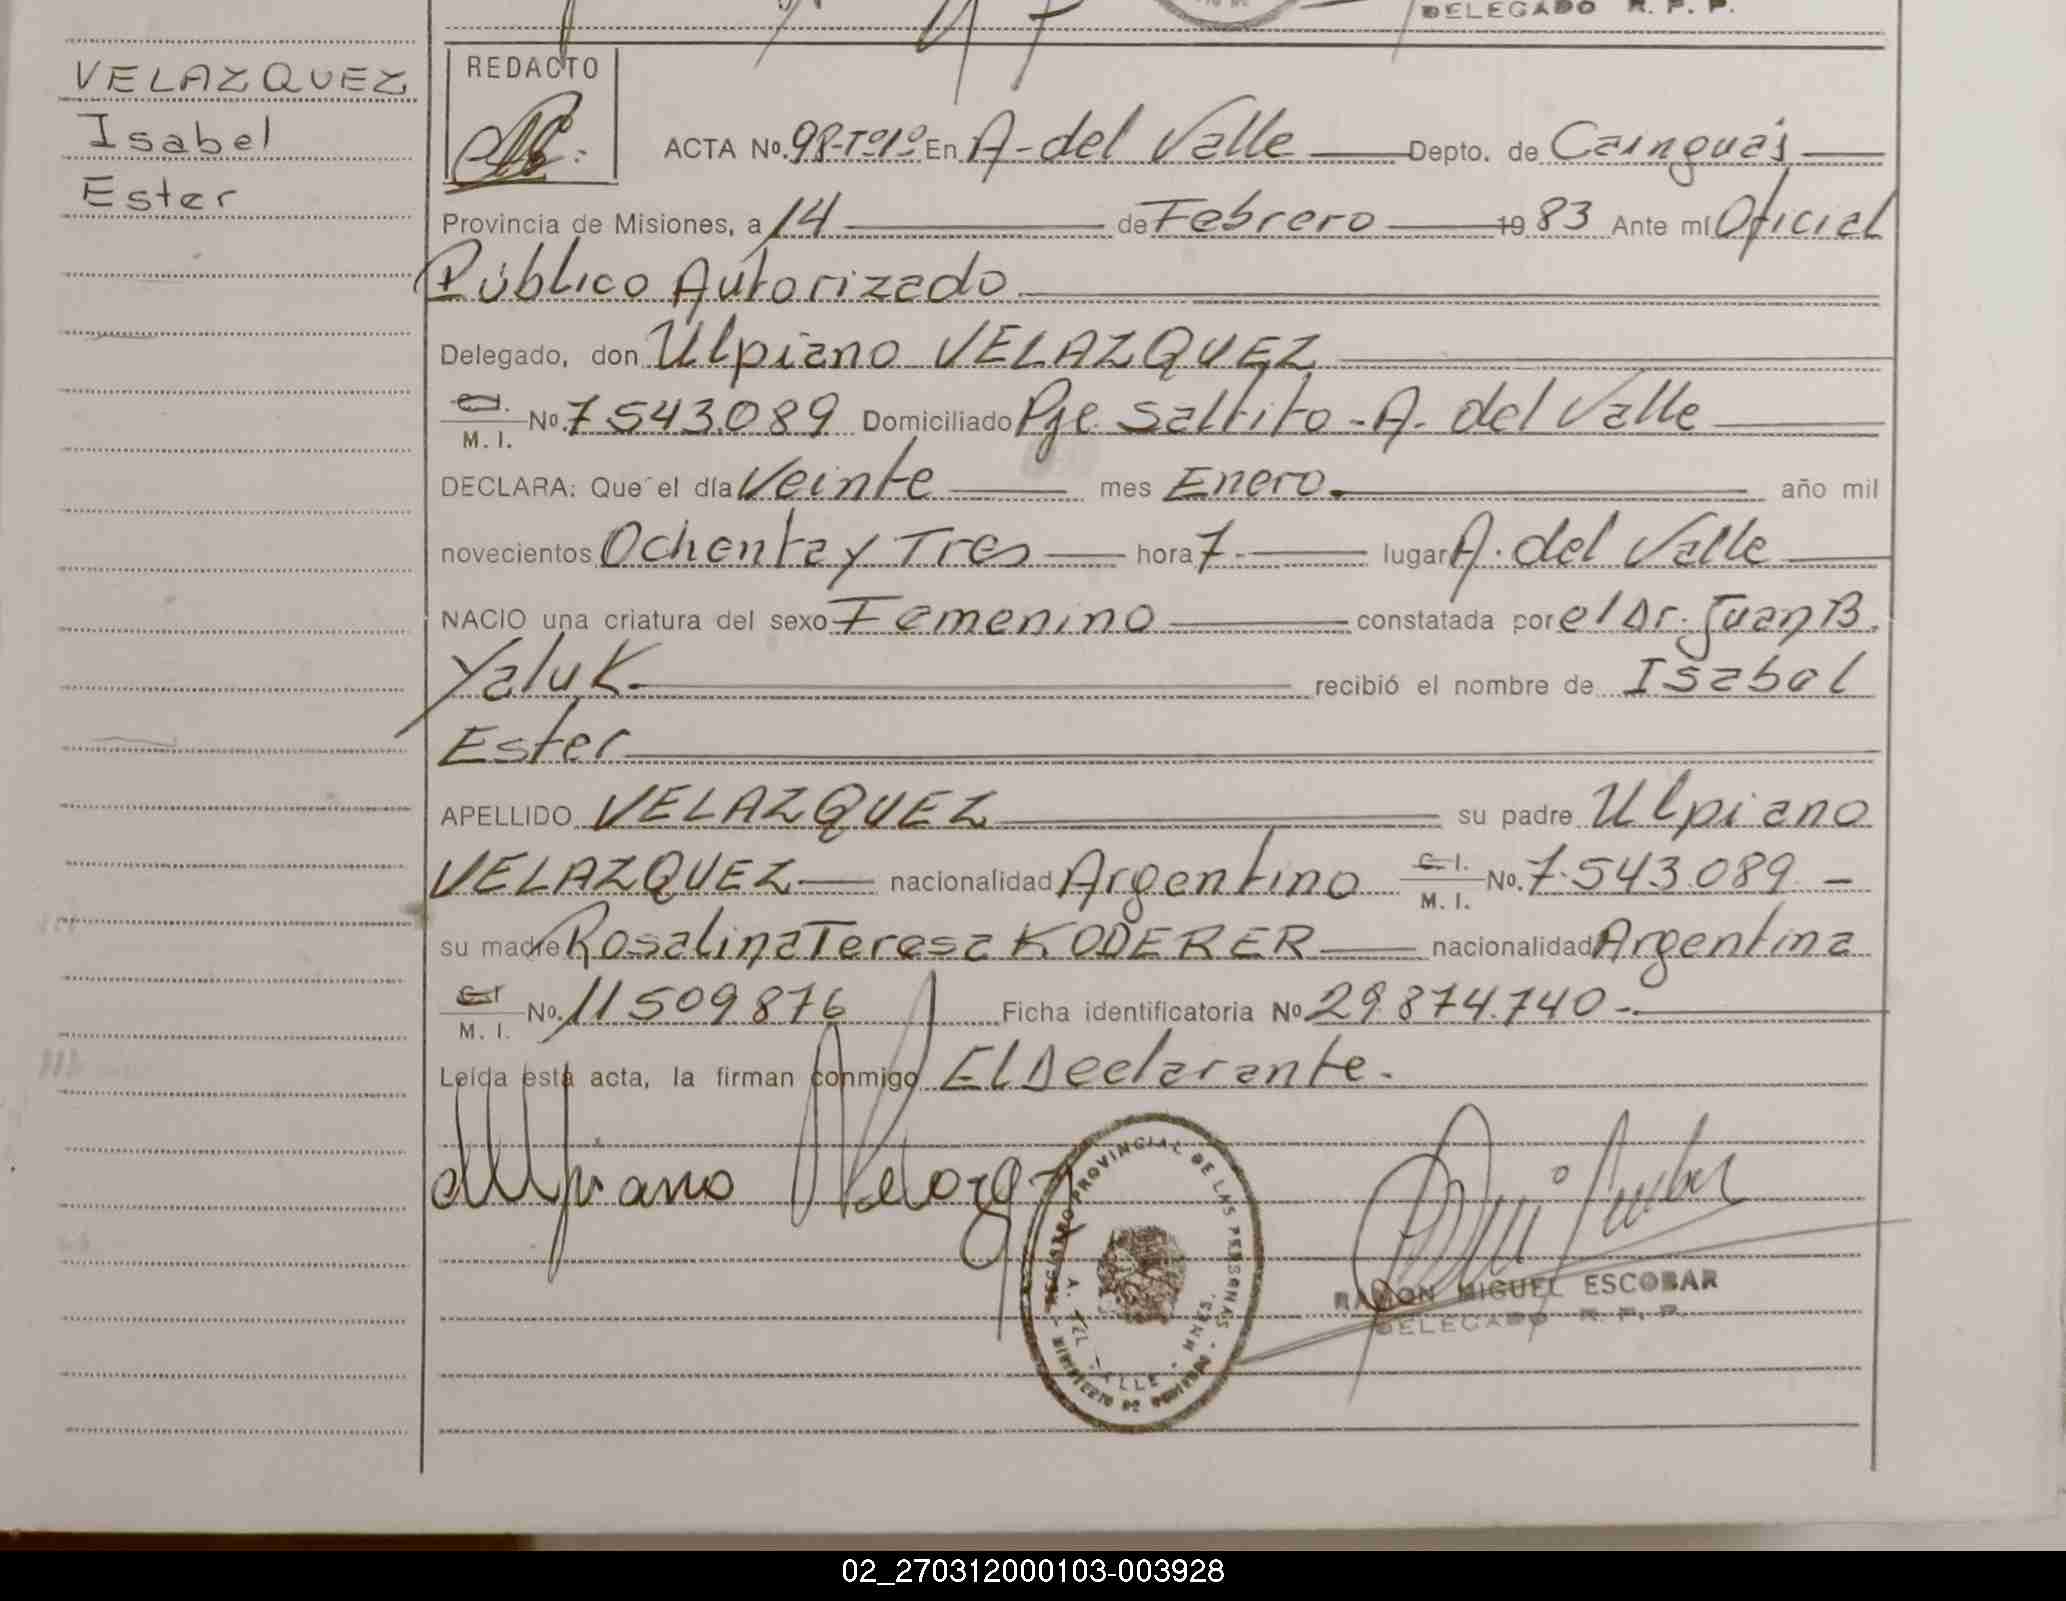 DELEGADO R. P. P.
VELAZQUEZ
Isabel
Ester
REDACTO
ACTA No. 98-Tº1º En A. del Valle Depto. de Cainguás
Provincia de Misiones, a 14 de Febrero 1983 Ante mí Oficial
Público Autorizado
Delegado, don Ulpiano VELAZQUEZ
C.I. M. I. No. 7.543.089 Domiciliado Pje Saltito - A. del Valle
DECLARA: Que el día Veinte mes Enero. año mil
novecientos Ochenta y Tres hora 7. lugar A. del Valle
NACIO una criatura del sexo Femenino constatada por el Dr. Juan B.
Yaluk. recibió el nombre de Isabel
Ester
APELLIDO VELAZQUEZ su padre Ulpiano
VELAZQUEZ nacionalidad Argentino C.I. M. I. No. 7.543.089 -
su madre Rosalina Teresa KODERER nacionalidad Argentina
C.I. M. I. No. 11509876 Ficha identificatoria No 29.874.740-
Leída esta acta, la firman conmigo El Declarante.
Ulpiano Velazq
REGISTRO PROVINCIAL DE LAS PERSONAS
A. DEL VALLE - MNES.
MINISTERIO DE GOBIERNO
RAMON MIGUEL ESCOBAR
DELEGADO R. P. P.
02_270312000103-003928